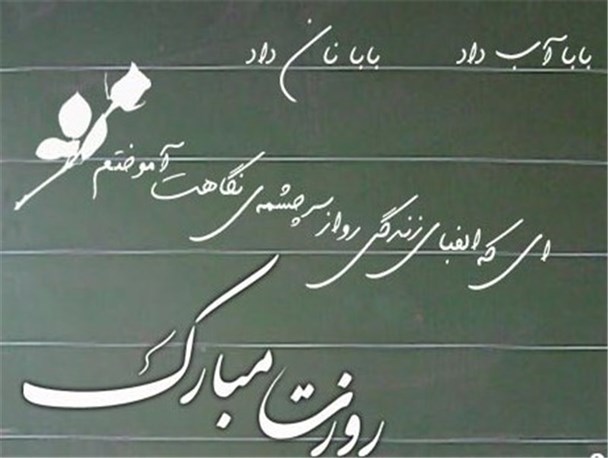 بابا آب داد   بابا نان داد
ای که الفبای زندگی رو از سرچشمه‌ی نگاهت آموختم
روزت مبارک